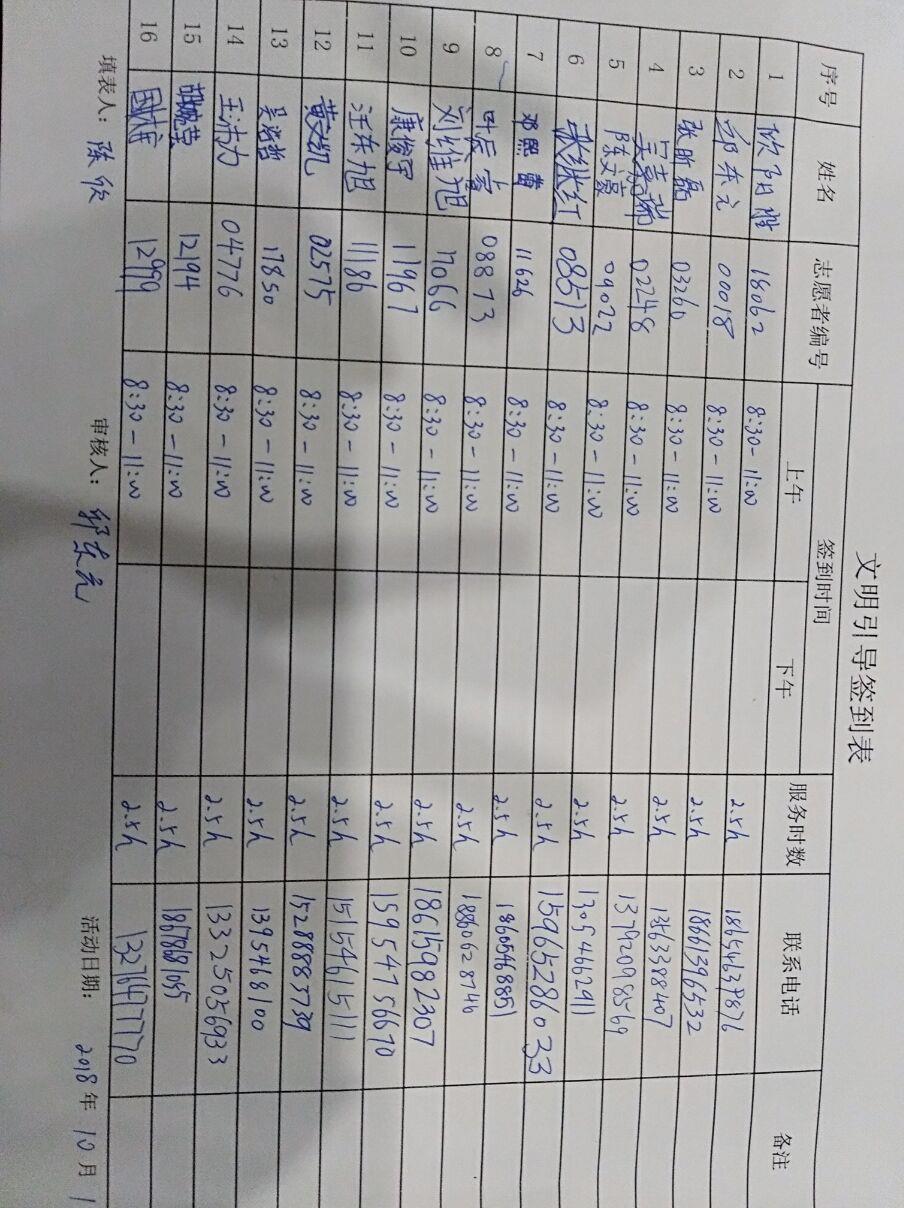 文明引导签到表
序号 姓名 志愿者编号 签到时间 服务时数 联系电话 备注
上午 下午
1 欧阳 18062 8:30-11:00 2.5h
2 邱东元 00018 8:30-11:00 2.5h 18661396532
3 张昕磊 03260 8:30-11:00 2.5h 13563388407
4 吴 02248 8:30-11:00 2.5h 13792098569
5 陈文 09022 8:30-11:00 2.5h 13054662911
6 张继红 08513 8:30-11:00 2.5h 15965286033
7 邓熙 11626 8:30-11:00 2.5h 18605468851
8 叶辰 08873 8:30-11:00 2.5h 18860628746
9 刘维旭 8:30-11:00 2.5h 18615982307
10 康俊宇 11967 8:30-11:00 2.5h 15954756670
11 汪东旭 11186 8:30-11:00 2.5h 15154615111
12 黄文凯 02575 8:30-11:00 2.5h 15288883739
13 吴浩哲 17850 8:30-11:00 2.5h 1395468100
14 王洪力 04776 8:30-11:00 2.5h 13325056933
15 12194 8:30-11:00 2.5h 18678681055
16 12999 8:30-11:00 2.5h
填表人：陈欣 审核人：邱东元 活动日期： 2018年10月1